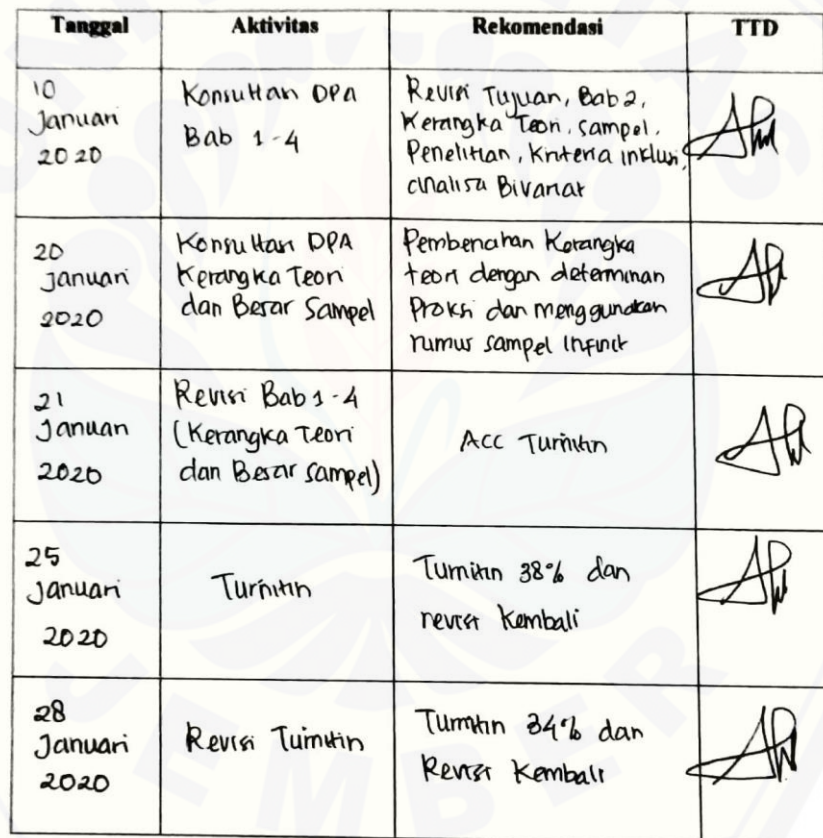 Tanggal Aktivitas Rekomendasi TTD
10 Januari 2020
Konsultasi DPA
Bab 1-4
Revisi Tujuan, Bab 2,
Kerangka Teori, sampel,
Penelitian, Kriteria inklusi,
analisa Bivariat
20 Januari 2020
Konsultasi DPA
Kerangka Teori
dan Besar Sampel
Pembenahan Kerangka
teori dengan determinan
Proksi dan menggunakan
rumus sampel infinit
21 Januari 2020
Revisi Bab 1-4
(Kerangka Teori
dan Besar sampel)
ACC Turnitin
25 Januari 2020
Turnitin
Turnitin 38% dan
revisi Kembali
28 Januari 2020
Revisi Turnitin
Turnitin 34% dan
Revisi Kembali
JEMBER